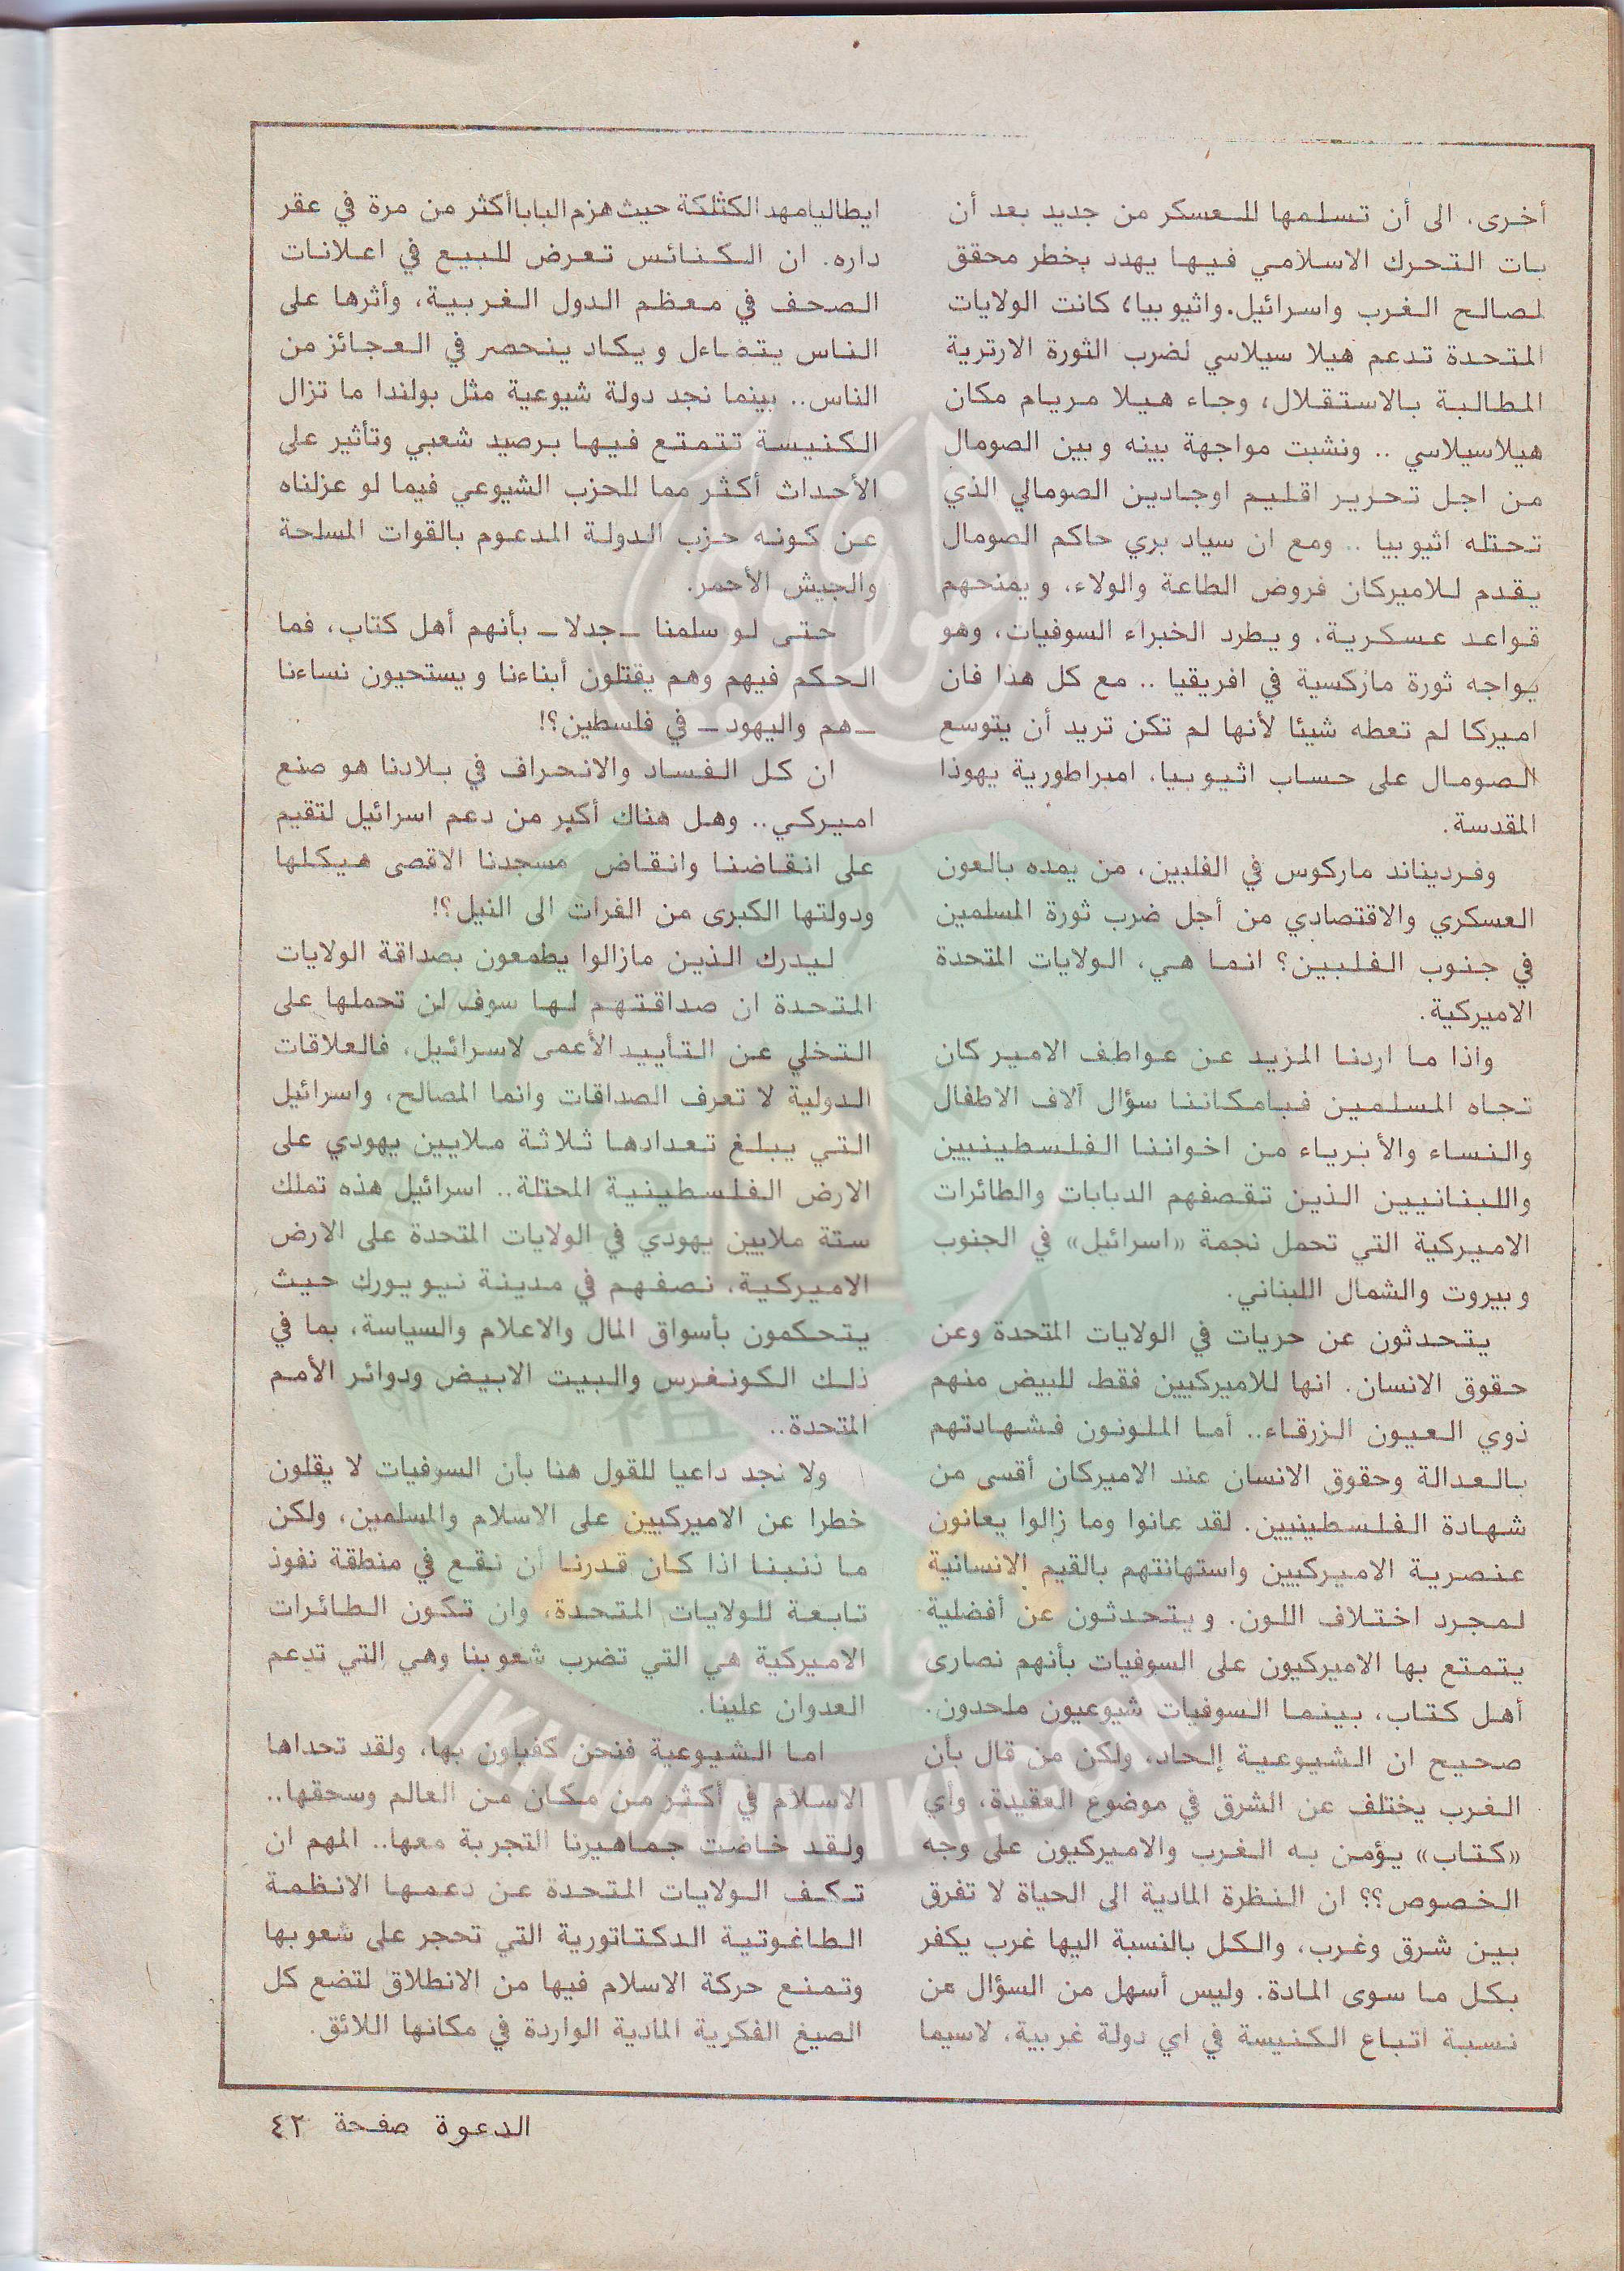 أخرى، الى أن تسلمها للعسكر من جديد بعد أن
بات التحرك الاسلامي فيها يهدد بخطر محقق
لصالح الغرب واسرائيل.واثيوبيا، كانت الولايات
المتحدة تدعم هيلا سيلاسي لضرب الثورة الارترية
المطالبة بالاستقلال، وجاء هيلا مريام مكان
هيلاسيلاسي .. ونشبت مواجهة بينه وبين الصومال
من اجل تحرير اقليم اوجادين الصومالي الذي
تحتله اثيوبيا .. ومع ان سياد بري حاكم الصومال
يقدم للاميركان فروض الطاعة والولاء، ويمنحهم
قواعد عسكرية، ويطرد الخبراء السوفيات، وهو
يواجه ثورة ماركسية في افريقيا .. مع كل هذا فان
اميركا لم تعطه شيئا لأنها لم تكن تريد أن يتوسع
الصومال على حساب اثيوبيا، امبراطورية يهوذا
المقدسة.
وفرديناند ماركوس في الفلبين، من يمده بالعون
العسكري والاقتصادي من أجل ضرب ثورة المسلمين
في جنوب الفلبين؟ انما هي، الولايات المتحدة
الاميركية.
واذا ما اردنا المزيد عن عواطف الاميركان
تجاه المسلمين فبامكاننا سؤال آلاف الاطفال
والنساء والأبرياء من اخواننا الفلسطينيين
واللبنانيين الذين تقصفهم الدبابات والطائرات
الاميركية التي تحمل نجمة «اسرائيل» في الجنوب
وبيروت والشمال اللبناني.
يتحدثون عن حريات في الولايات المتحدة وعن
حقوق الانسان. انها للاميركيين فقط للبيض منهم
ذوي العيون الزرقاء.. أما الملونون فشهادتهم
بالعدالة وحقوق الانسان عند الاميركان أقسى من
شهادة الفلسطينيين. لقد عانوا وما زالوا يعانون
عنصرية الاميركيين واستهانتهم بالقيم الانسانية
لمجرد اختلاف اللون. ويتحدثون عن أفضلية
يتمتع بها الاميركيون على السوفيات بأنهم نصارى
أهل كتاب، بينما السوفيات شيوعيون ملحدون.
صحيح ان الشيوعية إلحاد، ولكن من قال بأن
الغرب يختلف عن الشرق في موضوع العقيدة، وأي
«كتاب» يؤمن به الغرب والاميركيون على وجه
الخصوص؟؟ ان النظرة المادية الى الحياة لا تفرق
بين شرق وغرب، والكل بالنسبة اليها غرب يكفر
بكل ما سوى المادة. وليس أسهل من السؤال عن
نسبة اتباع الكنيسة في اي دولة غربية، لاسيما
ايطاليا مهد الكثلكة حيث هزم البابا أكثر من مرة في عقر
داره. ان الكنائس تعرض للبيع في اعلانات
الصحف في معظم الدول الغربية، وأثرها على
الناس يتضاءل ويكاد ينحصر في العجائز من
الناس.. بينما نجد دولة شيوعية مثل بولندا ما تزال
الكنيسة تتمتع فيها برصيد شعبي وتأثير على
الأحداث أكثر مما للحزب الشيوعي فيما لو عزلناه
عن كونه حزب الدولة المدعوم بالقوات المسلحة
والجيش الأحمر.
حتى لو سلمنا ـ جدلا ـ بأنهم أهل كتاب، فما
الحكم فيهم وهم يقتلون أبناءنا ويستحيون نساءنا
ـ هم واليهود ـ في فلسطين؟!
ان كل الفساد والانحراف في بلادنا هو صنع
اميركي.. وهل هناك أكبر من دعم اسرائيل لتقيم
على انقاضنا وانقاض مسجدنا الاقصى هيكلها
ودولتها الكبرى من الفرات الى النيل؟!
ليدرك الذين مازالوا يطمعون بصداقة الولايات
المتحدة ان صداقتهم لها سوف لن تحملها على
التخلي عن التأييد الأعمى لاسرائيل، فالعلاقات
الدولية لا تعرف الصداقات وانما المصالح، واسرائيل
التي يبلغ تعدادها ثلاثة ملايين يهودي على
الارض الفلسطينية المحتلة.. اسرائيل هذه تملك
ستة ملايين يهودي في الولايات المتحدة على الارض
الاميركية، نصفهم في مدينة نيويورك حيث
يتحكمون بأسواق المال والاعلام والسياسة، بما في
ذلك الكونغرس والبيت الابيض ودوائر الأمم
المتحدة..
ولا نجد داعيا للقول هنا بأن السوفيات لا يقلون
خطرا عن الاميركيين على الاسلام والمسلمين، ولكن
ما ذنبنا اذا كان قدرنا أن نقع في منطقة نفوذ
تابعة للولايات المتحدة، وان تكون الطائرات
الاميركية هي التي تضرب شعوبنا وهي التي تدعم
العدوان علينا.
اما الشيوعية فنحن كفيلون بها، ولقد تحداها
الاسلام في أكثر من مكان من العالم وسحقها..
ولقد خاضت جماهيرنا التجربة معها.. المهم ان
تكف الولايات المتحدة عن دعمها الانظمة
الطاغوتية الدكتاتورية التي تحجر على شعوبها
وتمنع حركة الاسلام فيها من الانطلاق لتضع كل
الصيغ الفكرية المادية الواردة في مكانها اللائق.
الدعوة صفحة ٤٢
IKHWANWIKI.COM